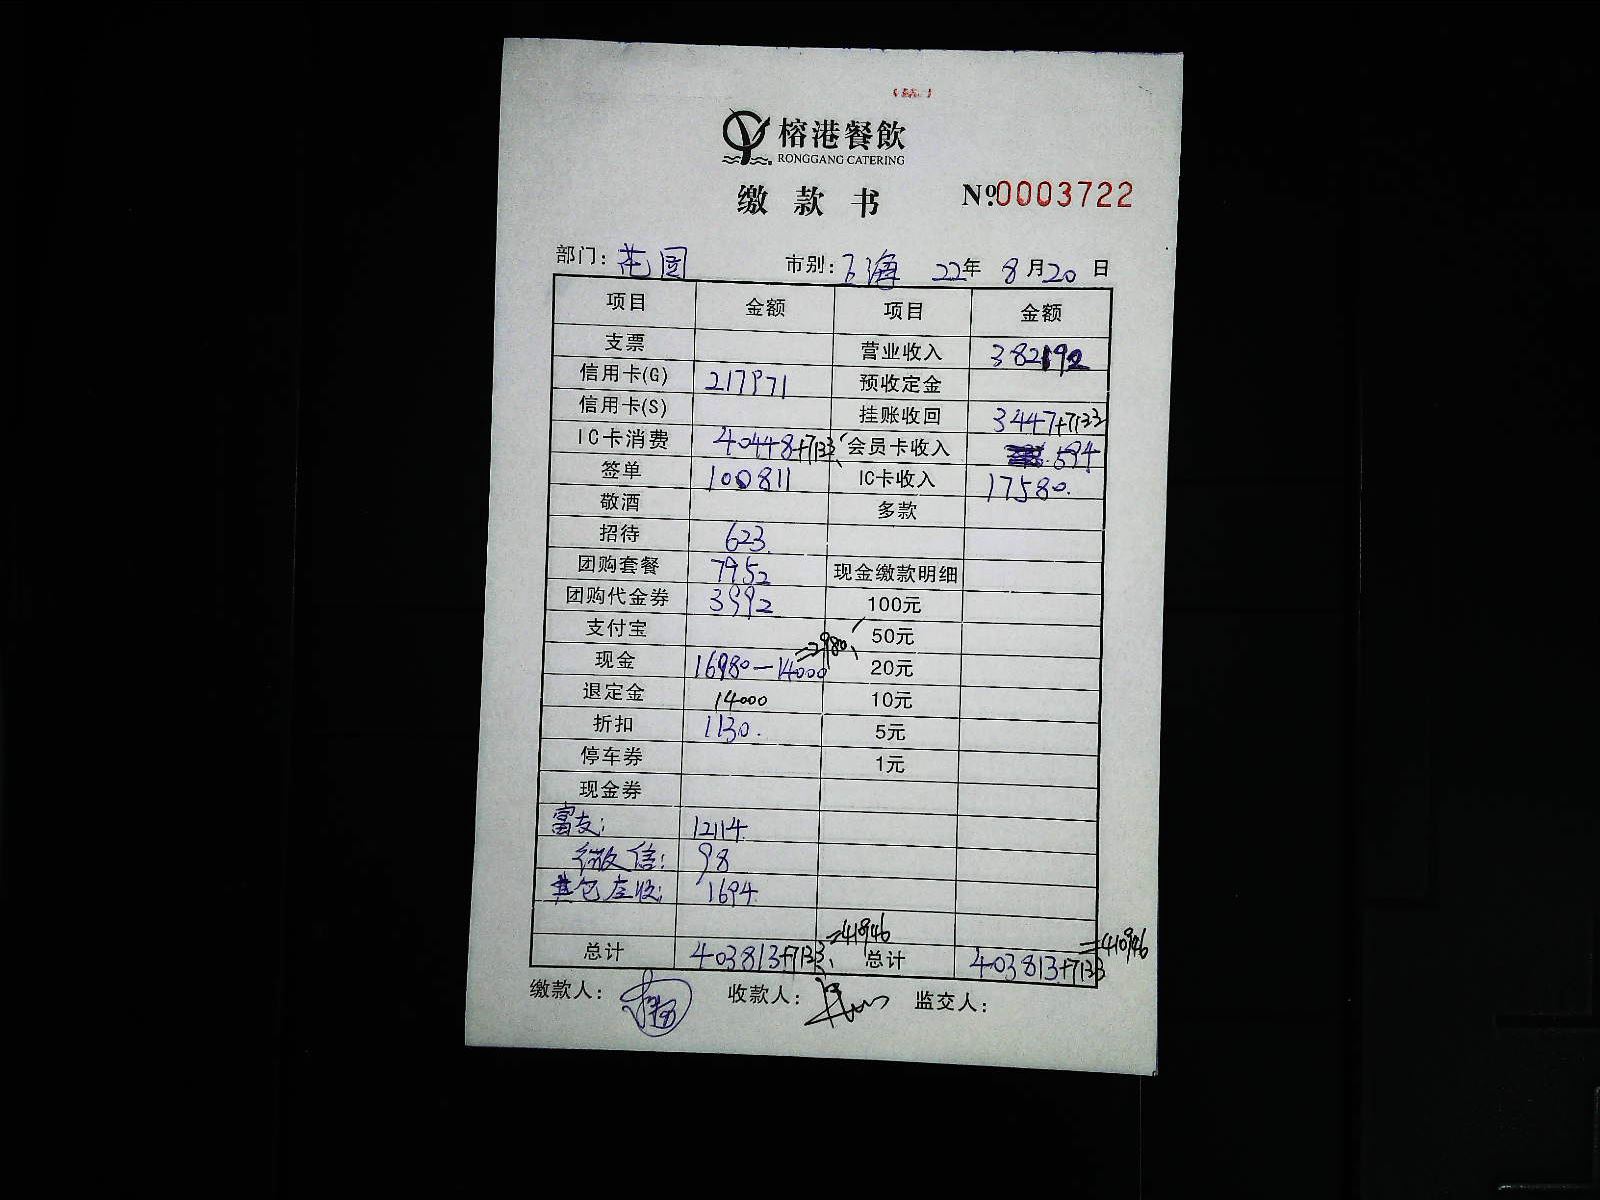 榕港餐飲
RONGGANG CATERING
缴款书 №0003722
部门: 花园 市别: 22年 8月20日
项目 金额 项目 金额
支票 营业收入 382192
信用卡(G) 217971 预收定金
信用卡(S) 挂账收回 3447+7133
IC卡消费 40448+7133 会员卡收入 594
签单 100811 IC卡收入 17580.
敬酒 多款
招待 623.
团购套餐 7952 现金缴款明细
团购代金券 3992 100元
支付宝 50元
现金 16980-14000=2980 20元
退定金 14000 10元
折扣 1130. 5元
停车券 1元
现金券
富友: 12114.
微信: 98
包应收: 1694.
总计 403813+7133=410946 总计 403813+7133=410946
缴款人: 收款人: 监交人: